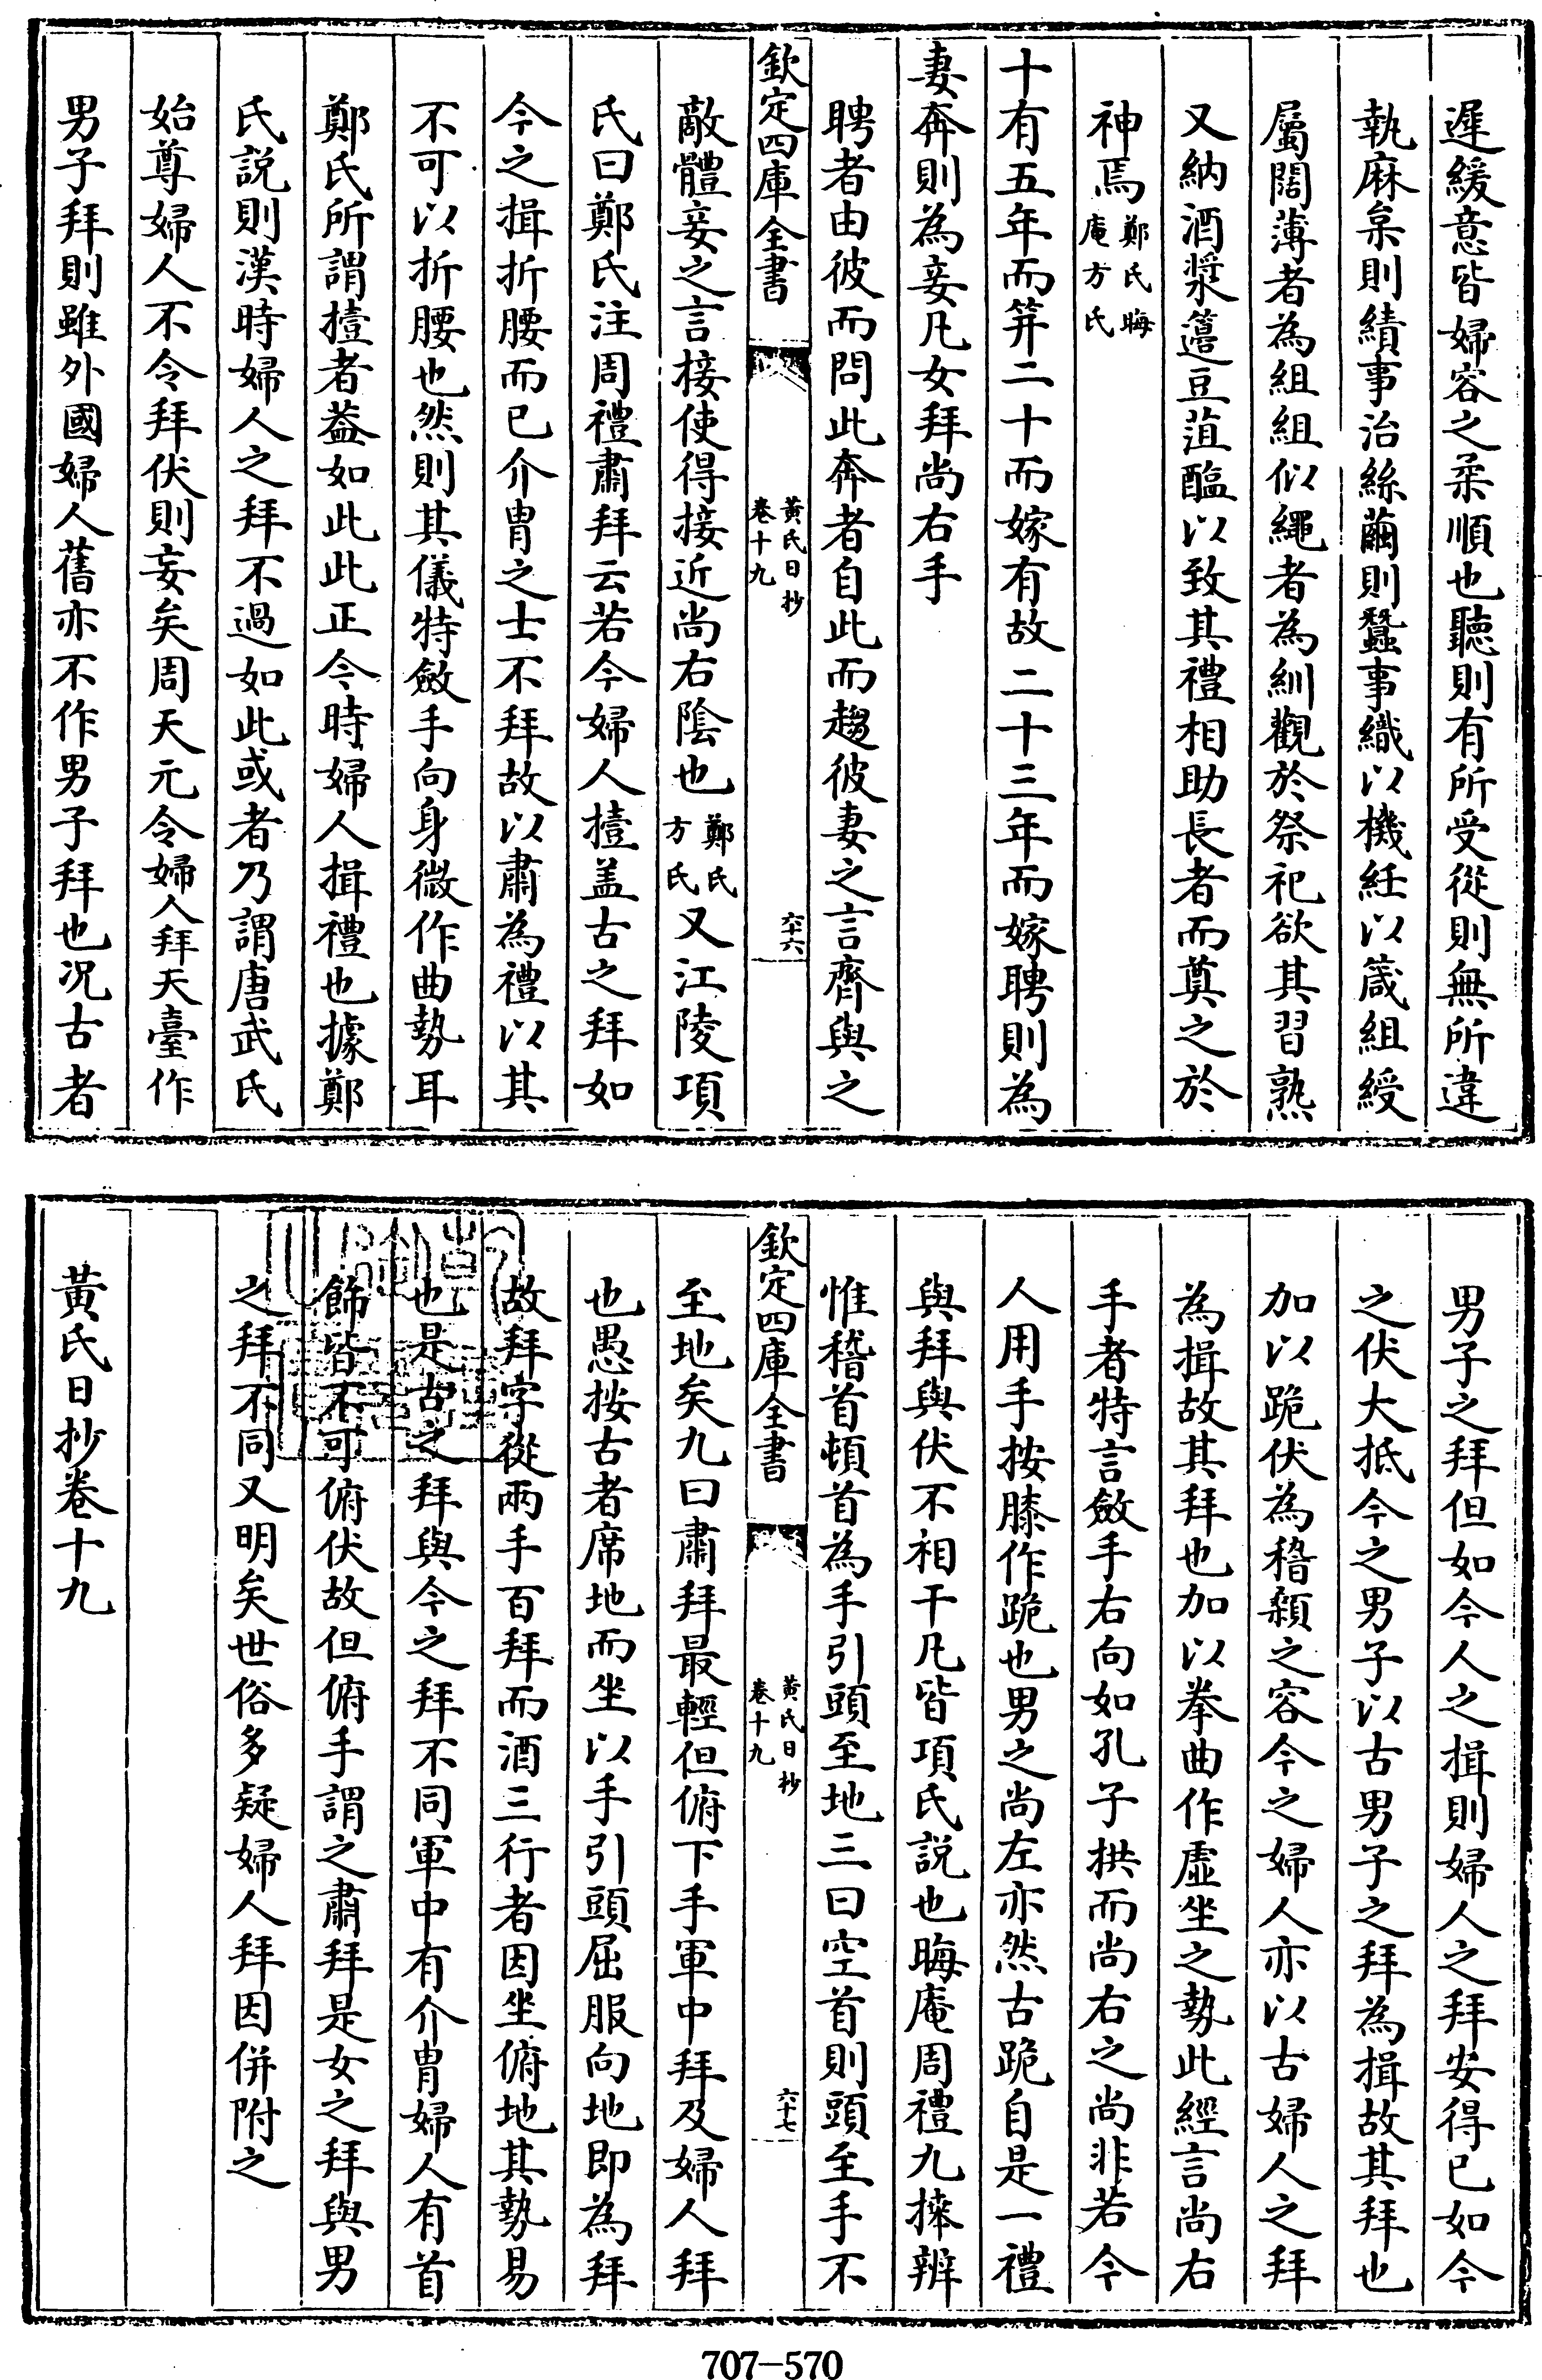 遲緩意皆婦容之柔順也聽則有所受從則無所違
執麻枲則績事治絲繭則蠶事織以機紝以箴組綬
屬闊薄者為組組似繩者為紃觀於祭祀欲其習熟
又納酒漿籩豆菹醢以致其禮相助長者而奠之於
神焉鄭氏晦庵方氏
十有五年而笄二十而嫁有故二十三年而嫁聘則為
妻奔則為妾凡女拜尚右手
聘者由彼而問此奔者自此而趨彼妻之言齊與之
欽定四庫全書
黃氏日抄
卷十九
六十六
敵體妾之言接使得接近尚右陰也鄭氏方氏又江陵項
氏曰鄭氏注周禮肅拜云若今婦人撎盖古之拜如
今之揖折腰而已介胄之士不拜故以肅為禮以其
不可以折腰也然則其儀特斂手向身微作曲勢耳
鄭氏所謂撎者葢如此此正今時婦人揖禮也據鄭
氏說則漢時婦人之拜不過如此或者乃謂唐武氏
始尊婦人不令拜伏則妄矣周天元令婦人拜天臺作
男子拜則雖外國婦人舊亦不作男子拜也况古者
男子之拜但如今人之揖則婦人之拜安得已如今
之伏大抵今之男子以古男子之拜為揖故其拜也
加以跪伏為稽顙之容今之婦人亦以古婦人之拜
為揖故其拜也加以拳曲作虛坐之勢此經言尚右
手者特言斂手右向如孔子拱而尚右之尚非若今
人用手按膝作跪也男之尚左亦然古跪自是一禮
與拜與伏不相干凡皆項氏說也晦庵周禮九㨈辨
惟稽首頓首為手引頭至地三曰空首則頭至手不
欽定四庫全書
黃氏日抄
卷十九
六十七
至地矣九曰肅拜最輕但俯下手軍中拜及婦人拜
也愚按古者席地而坐以手引頭屈服向地即為拜
故拜字從兩手百拜而酒三行者因坐俯地其勢易
也是古之拜與今之拜不同軍中有介胄婦人有首
飾皆不可俯伏故但俯手謂之肅拜是女之拜與男
之拜不同又明矣世俗多疑婦人拜因併附之
黃氏日抄卷十九
707-570